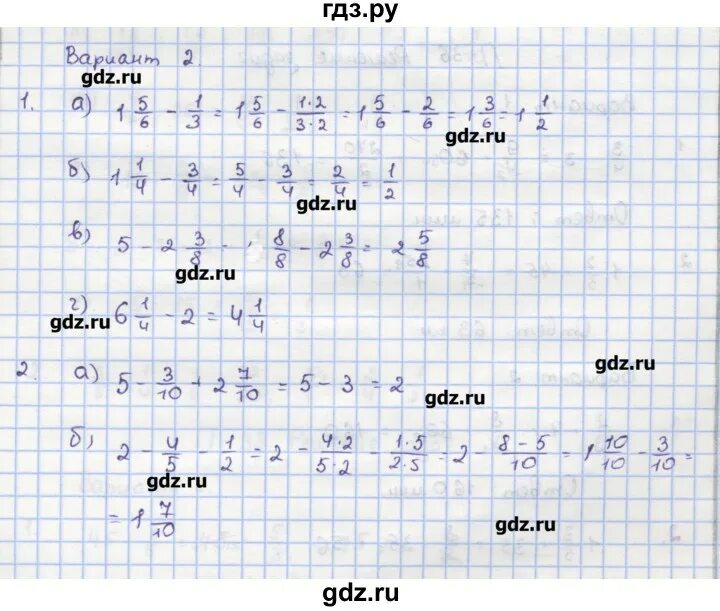 гдз.ру
Вариант 2.
gdz.ru
1. а) 1 5/6 - 1/3 = 1 5/6 - 1·2/3·2 = 1 5/6 - 2/6 = 1 3/6 = 1 1/2
gdz.ru
б) 1 1/4 - 3/4 = 5/4 - 3/4 = 2/4 = 1/2
gdz.ru
в) 5 - 2 3/8 = 8/8 - 2 3/8 = 2 5/8
gdz.ru
г) 6 1/4 - 2 = 4 1/4
gdz.ru
gdz.ru
2. а) 5 - 3/10 + 2 7/10 = 5 - 3 = 2
gdz.ru
б) 2 - 4/5 - 1/2 = 2 - 4·2/5·2 - 1·5/2·5 = 2 - 8-5/10 = 1 10/10 - 3/10 =
gdz.ru
= 1 7/10
gdz.ru
gdz.ru